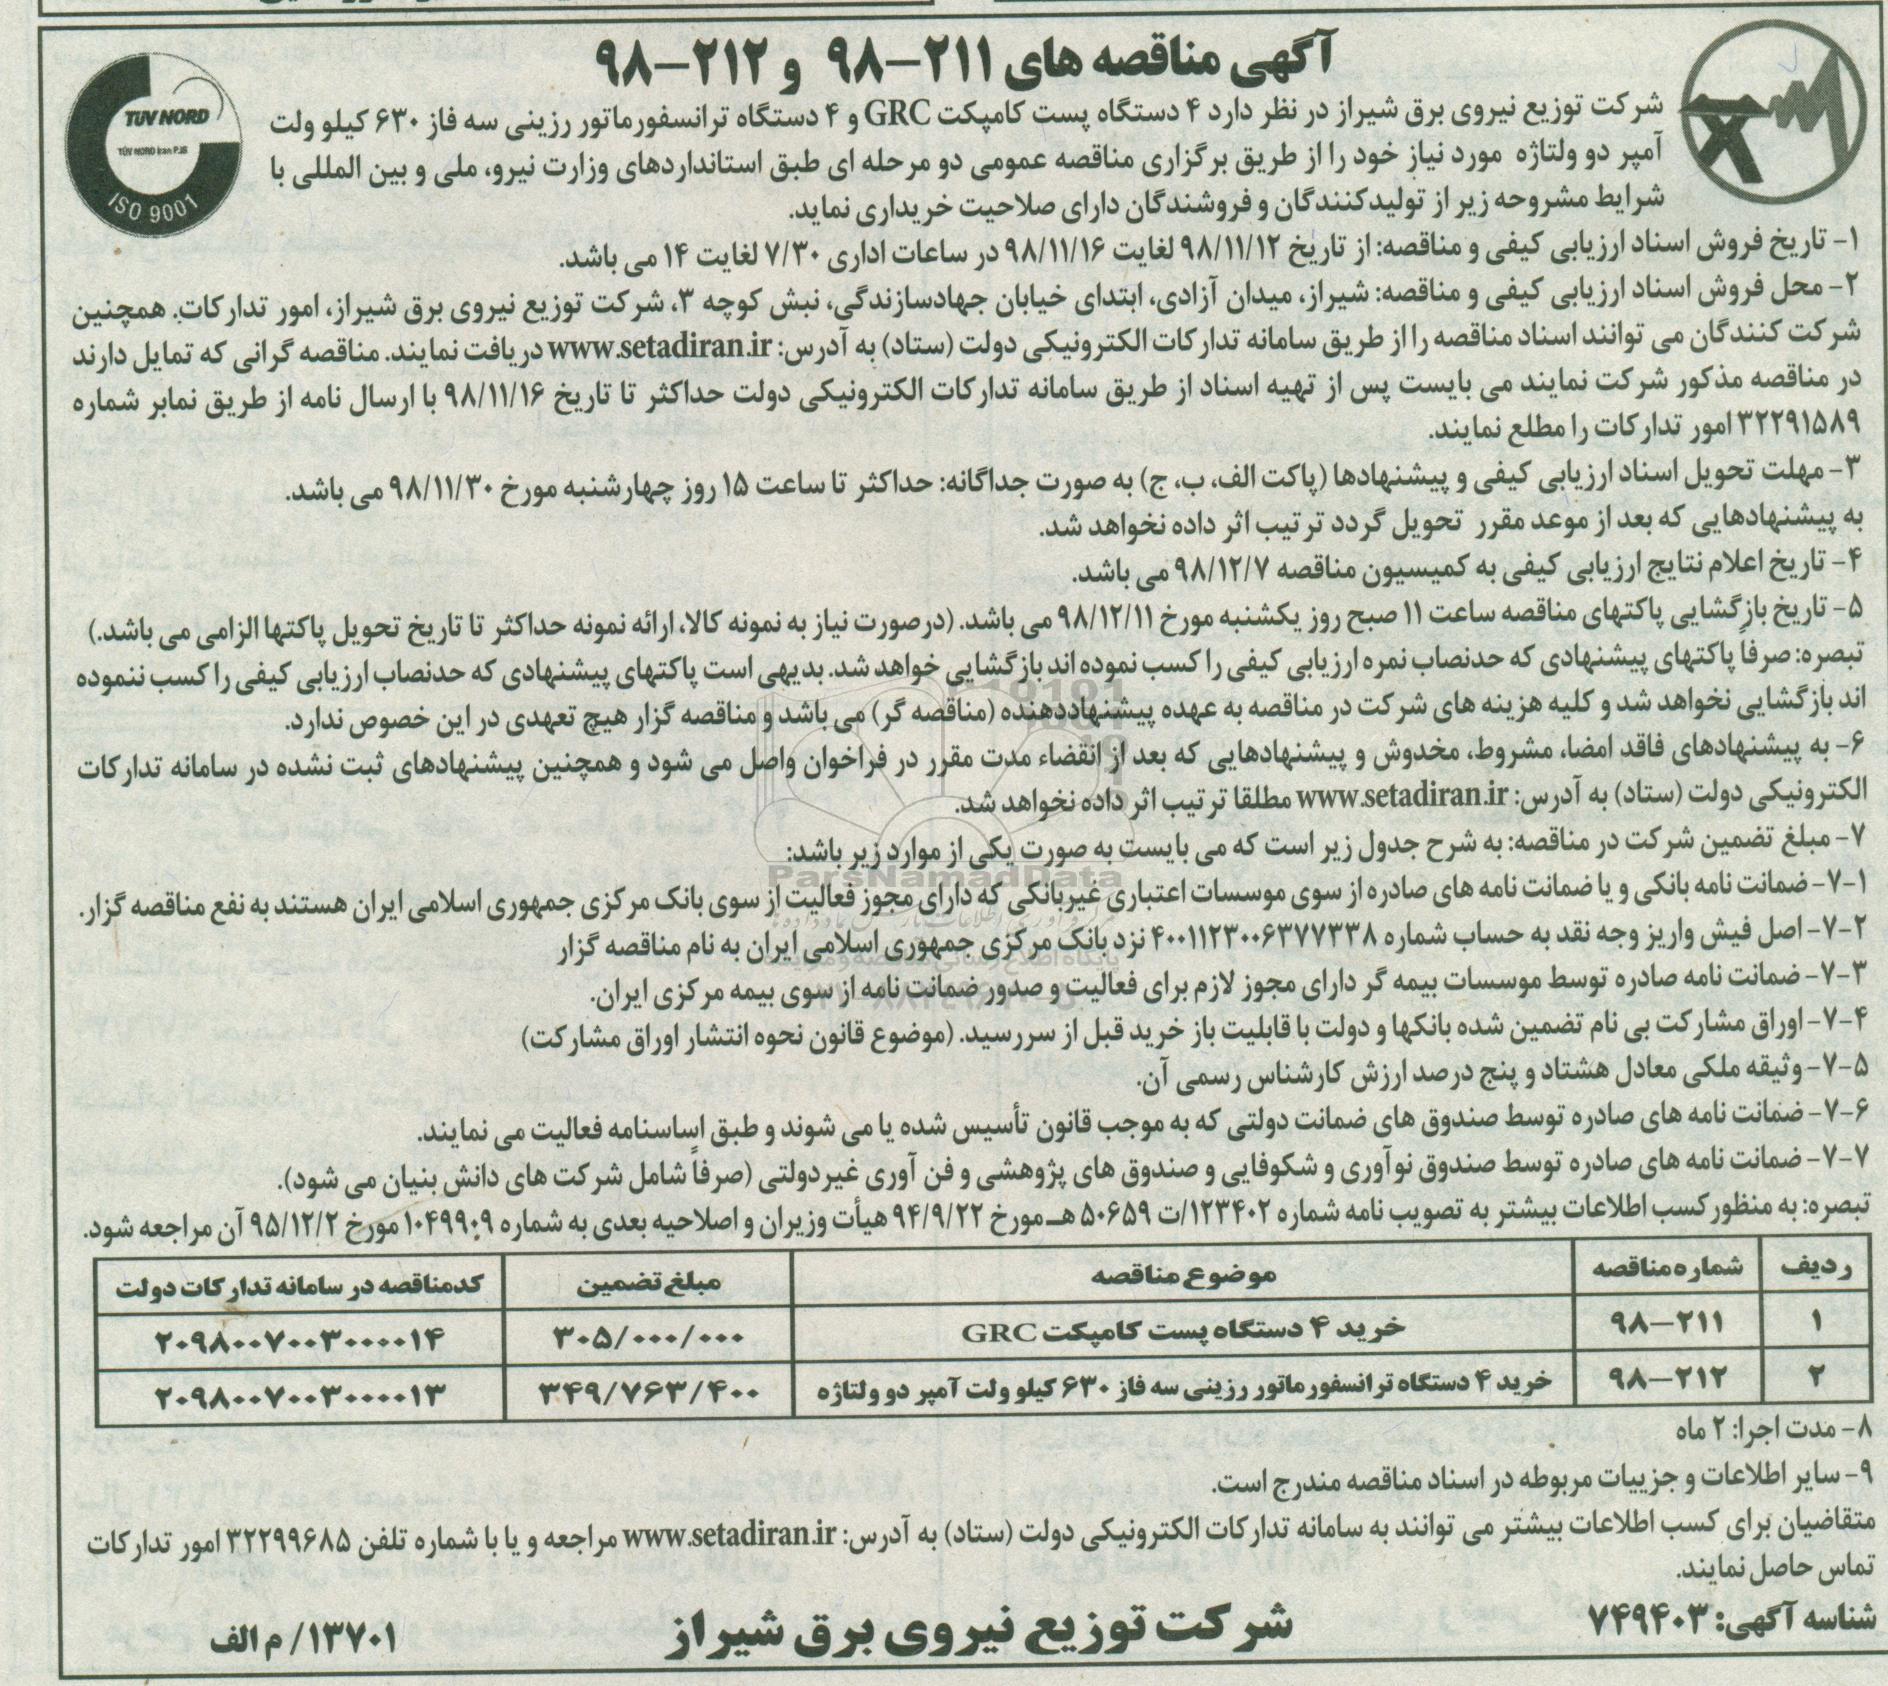 آگهی مناقصه های ۲۱۱-۹۸ و ۲۱۲-۹۸
TUV NORD
TÜV NORD Iran PJS
ISO 9001
شرکت توزیع نیروی برق شیراز در نظر دارد ۴ دستگاه پست کامپکت GRC و ۴ دستگاه ترانسفورماتور رزینی سه فاز ۶۳۰ کیلو ولت
آمپر دو ولتاژه مورد نیاز خود را از طریق برگزاری مناقصه عمومی دو مرحله ای طبق استانداردهای وزارت نیرو، ملی و بین المللی با
شرایط مشروحه زیر از تولیدکنندگان و فروشندگان دارای صلاحیت خریداری نماید.
۱- تاریخ فروش اسناد ارزیابی کیفی و مناقصه: از تاریخ ۹۸/۱۱/۱۲ لغایت ۹۸/۱۱/۱۶ در ساعات اداری ۷/۳۰ لغایت ۱۴ می باشد.
۲- محل فروش اسناد ارزیابی کیفی و مناقصه: شیراز، میدان آزادی، ابتدای خیابان جهادسازندگی، نبش کوچه ۳، شرکت توزیع نیروی برق شیراز، امور تدارکات. همچنین
شرکت کنندگان می توانند اسناد مناقصه را از طریق سامانه تدارکات الکترونیکی دولت (ستاد) به آدرس: www.setadiran.ir دریافت نمایند. مناقصه گرانی که تمایل دارند
در مناقصه مذکور شرکت نمایند می بایست پس از تهیه اسناد از طریق سامانه تدارکات الکترونیکی دولت حداکثر تا تاریخ ۹۸/۱۱/۱۶ با ارسال نامه از طریق نمابر شماره
۳۲۲۹۱۵۸۹ امور تدارکات را مطلع نمایند.
۳- مهلت تحویل اسناد ارزیابی کیفی و پیشنهادها (پاکت الف، ب، ج) به صورت جداگانه: حداکثر تا ساعت ۱۵ روز چهارشنبه مورخ ۹۸/۱۱/۳۰ می باشد.
به پیشنهادهایی که بعد از موعد مقرر تحویل گردد ترتیب اثر داده نخواهد شد.
۴- تاریخ اعلام نتایج ارزیابی کیفی به کمیسیون مناقصه ۹۸/۱۲/۷ می باشد.
۵- تاریخ بازگشایی پاکتهای مناقصه ساعت ۱۱ صبح روز یکشنبه مورخ ۹۸/۱۲/۱۱ می باشد. (درصورت نیاز به نمونه کالا، ارائه نمونه حداکثر تا تاریخ تحویل پاکتها الزامی می باشد.)
تبصره: صرفاً پاکتهای پیشنهادی که حدنصاب نمره ارزیابی کیفی را کسب نموده اند بازگشایی خواهد شد. بدیهی است پاکتهای پیشنهادی که حدنصاب ارزیابی کیفی را کسب ننموده
اند بازگشایی نخواهد شد و کلیه هزینه های شرکت در مناقصه به عهده پیشنهاددهنده (مناقصه گر) می باشد و مناقصه گزار هیچ تعهدی در این خصوص ندارد.
۶- به پیشنهادهای فاقد امضا، مشروط، مخدوش و پیشنهادهایی که بعد از انقضاء مدت مقرر در فراخوان واصل می شود و همچنین پیشنهادهای ثبت نشده در سامانه تدارکات
الکترونیکی دولت (ستاد) به آدرس: www.setadiran.ir مطلقا ترتیب اثر داده نخواهد شد.
۷- مبلغ تضمین شرکت در مناقصه: به شرح جدول زیر است که می بایست به صورت یکی از موارد زیر باشد:
ParsNamadData
۷-۱- ضمانت نامه بانکی و یا ضمانت نامه های صادره از سوی موسسات اعتباری غیربانکی که دارای مجوز فعالیت از سوی بانک مرکزی جمهوری اسلامی ایران هستند به نفع مناقصه گزار.
۷-۲- اصل فیش واریز وجه نقد به حساب شماره ۴۰۰۱۱۲۳۰۰۶۳۷۷۳۳۸ نزد بانک مرکزی جمهوری اسلامی ایران به نام مناقصه گزار
۷-۳- ضمانت نامه صادره توسط موسسات بیمه گر دارای مجوز لازم برای فعالیت و صدور ضمانت نامه از سوی بیمه مرکزی ایران.
۷-۴- اوراق مشارکت بی نام تضمین شده بانکها و دولت با قابلیت باز خرید قبل از سررسید. (موضوع قانون نحوه انتشار اوراق مشارکت)
۷-۵- وثیقه ملکی معادل هشتاد و پنج درصد ارزش کارشناس رسمی آن.
۷-۶- ضمانت نامه های صادره توسط صندوق های ضمانت دولتی که به موجب قانون تأسیس شده یا می شوند و طبق اساسنامه فعالیت می نمایند.
۷-۷- ضمانت نامه های صادره توسط صندوق نوآوری و شکوفایی و صندوق های پژوهشی و فن آوری غیردولتی (صرفاً شامل شرکت های دانش بنیان می شود).
تبصره: به منظور کسب اطلاعات بیشتر به تصویب نامه شماره ۱۲۳۴۰۲/ت ۵۰۶۵۹ هـ مورخ ۹۴/۹/۲۲ هیأت وزیران و اصلاحیه بعدی به شماره ۱۰۴۹۹۰۹ مورخ ۹۵/۱۲/۲ آن مراجعه شود.
ردیف شماره مناقصه موضوع مناقصه مبلغ تضمین کدمناقصه در سامانه تدارکات دولت
۱ ۹۸-۲۱۱ خرید ۴ دستگاه پست کامپکت GRC ۳۰۵/۰۰۰/۰۰۰ ۲۰۹۸۰۰۷۰۰۳۰۰۰۰۱۴
۲ ۹۸-۲۱۲ خرید ۴ دستگاه ترانسفورماتور رزینی سه فاز ۶۳۰ کیلو ولت آمپر دو ولتاژه ۳۴۹/۷۶۳/۴۰۰ ۲۰۹۸۰۰۷۰۰۳۰۰۰۰۱۳
۸- مدت اجرا: ۲ ماه
۹- سایر اطلاعات و جزییات مربوطه در اسناد مناقصه مندرج است.
متقاضیان برای کسب اطلاعات بیشتر می توانند به سامانه تدارکات الکترونیکی دولت (ستاد) به آدرس: www.setadiran.ir مراجعه و یا با شماره تلفن ۳۲۲۹۹۶۸۵ امور تدارکات
تماس حاصل نمایند.
شناسه آگهی: ۷۴۹۴۰۳
شرکت توزیع نیروی برق شیراز
۱۳۷۰۱/ م الف